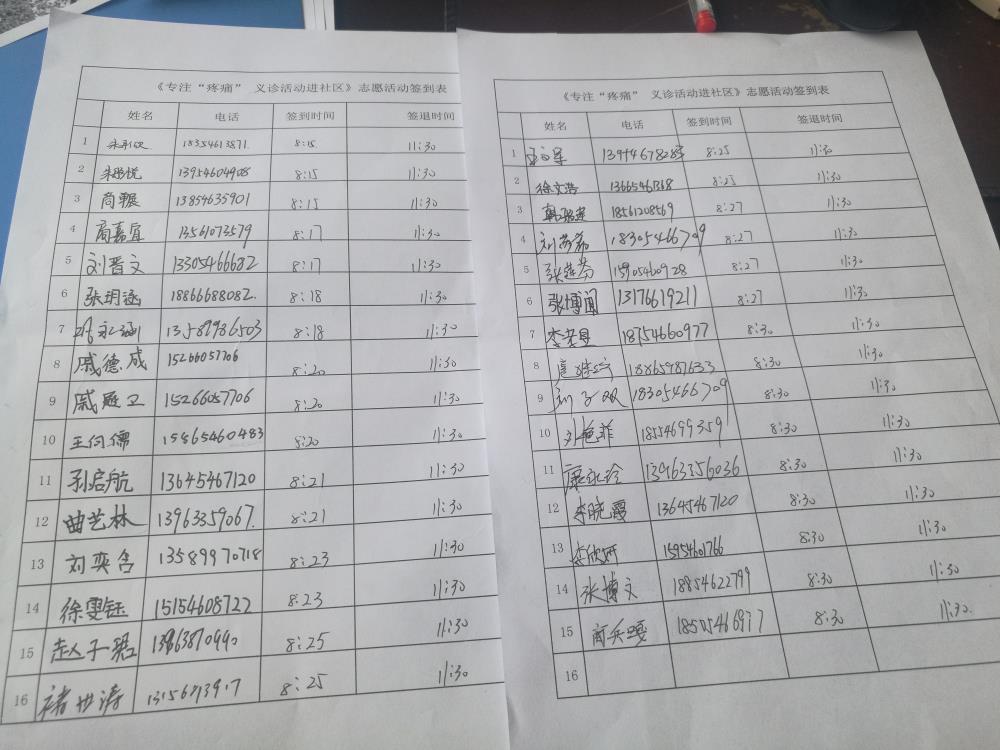 《专注“疼痛” 义诊活动进社区》志愿活动签到表
姓名 电话 签到时间 签退时间
1 18354613871. 8:15 11:30
2 13954604908 8:15 11:30
3 13854635901 8:15 11:30
4 商嘉宜 13561073579 8:17 11:30
5 刘晋文 13305466682 8:17 11:30
6 张玥涵 18866688082. 8:18 11:30
7 13589986503 8:18 11:30
8 戚德成 15266057706 8:20 11:30
9 戚 卫 15266057706 8:20 11:30
10 王向儒 15865460483 8:20 11:30
11 孙启航 13645467120 8:21 11:30
12 曲艺林 13963359067. 8:21 11:30
13 刘奕含 13589970718 8:23 11:30
14 徐雯钰 15154608722 8:23 11:30
15 赵子珺 8:25 11:30
16 褚世涛 8:25 11:30
《专注“疼痛” 义诊活动进社区》志愿活动签到表
姓名 电话 签到时间 签退时间
1 8:25 11:30
2 徐文浩 8:25 11:30
3 18561208569 8:27 11:30
4 18305466709 8:27 11:30
5 15905460928 8:27 11:30
6 张博闻 13176619211 8:27 11:30
7 18754660977 8:30 11:30
8 18865987633 8:30 11:30
9 刘子双 18305466709 8:30 11:30
10 刘艳菲 18554699359 8:30 11:30
11 13963356036 8:30 11:30
12 李晓霞 13645467120 8:30 11:30
13 李欣妍 15954601766 8:30 11:30
14 张博文 18854622799 8:30 11:30
15 18505466977 8:30 11:30.
16